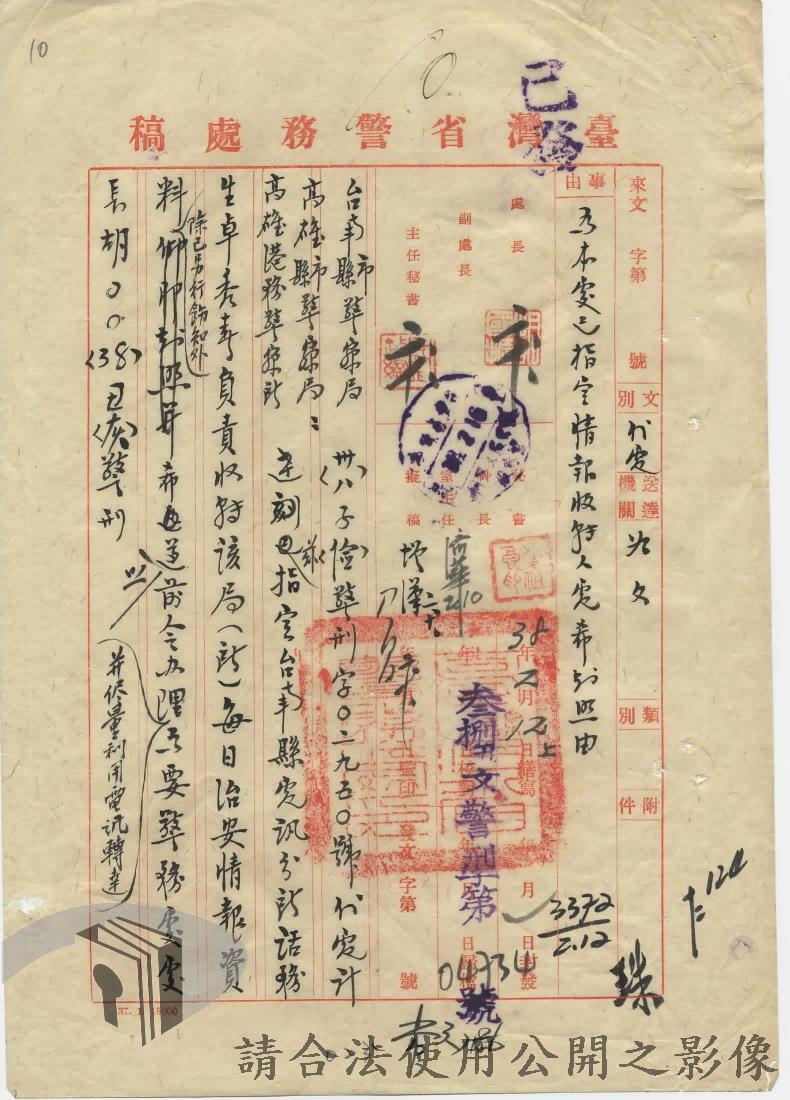 10
已發
臺灣省警務處稿
來文 字第 號
文別 代電
送達機關 如文
類別
附件
事由
為本處已指定情報收轉人電希知照由
處長
副處長
主任秘書
秘書
擬稿
38年2月12日上繕寫
年 月 日封發
監印
發文 字第 號
叁捌丑文警刑字第 號
04734
3372
2.12
台南縣市警察局
高雄市縣警察局:
高雄港務警察所
(卅八)子(儉)警刑字0二九五0號代電計
達刻茲指定台南縣電訊分所話務
生卓秀春負責收轉該局(所)每日治安情報資
料除已另行飭知外仰即知照并希遵前令辦理為要警務處處
以
并儘量利用電訊轉達
長胡00(38)丑(灰)警刑
37. 1. 15000
請合法使用公開之影像